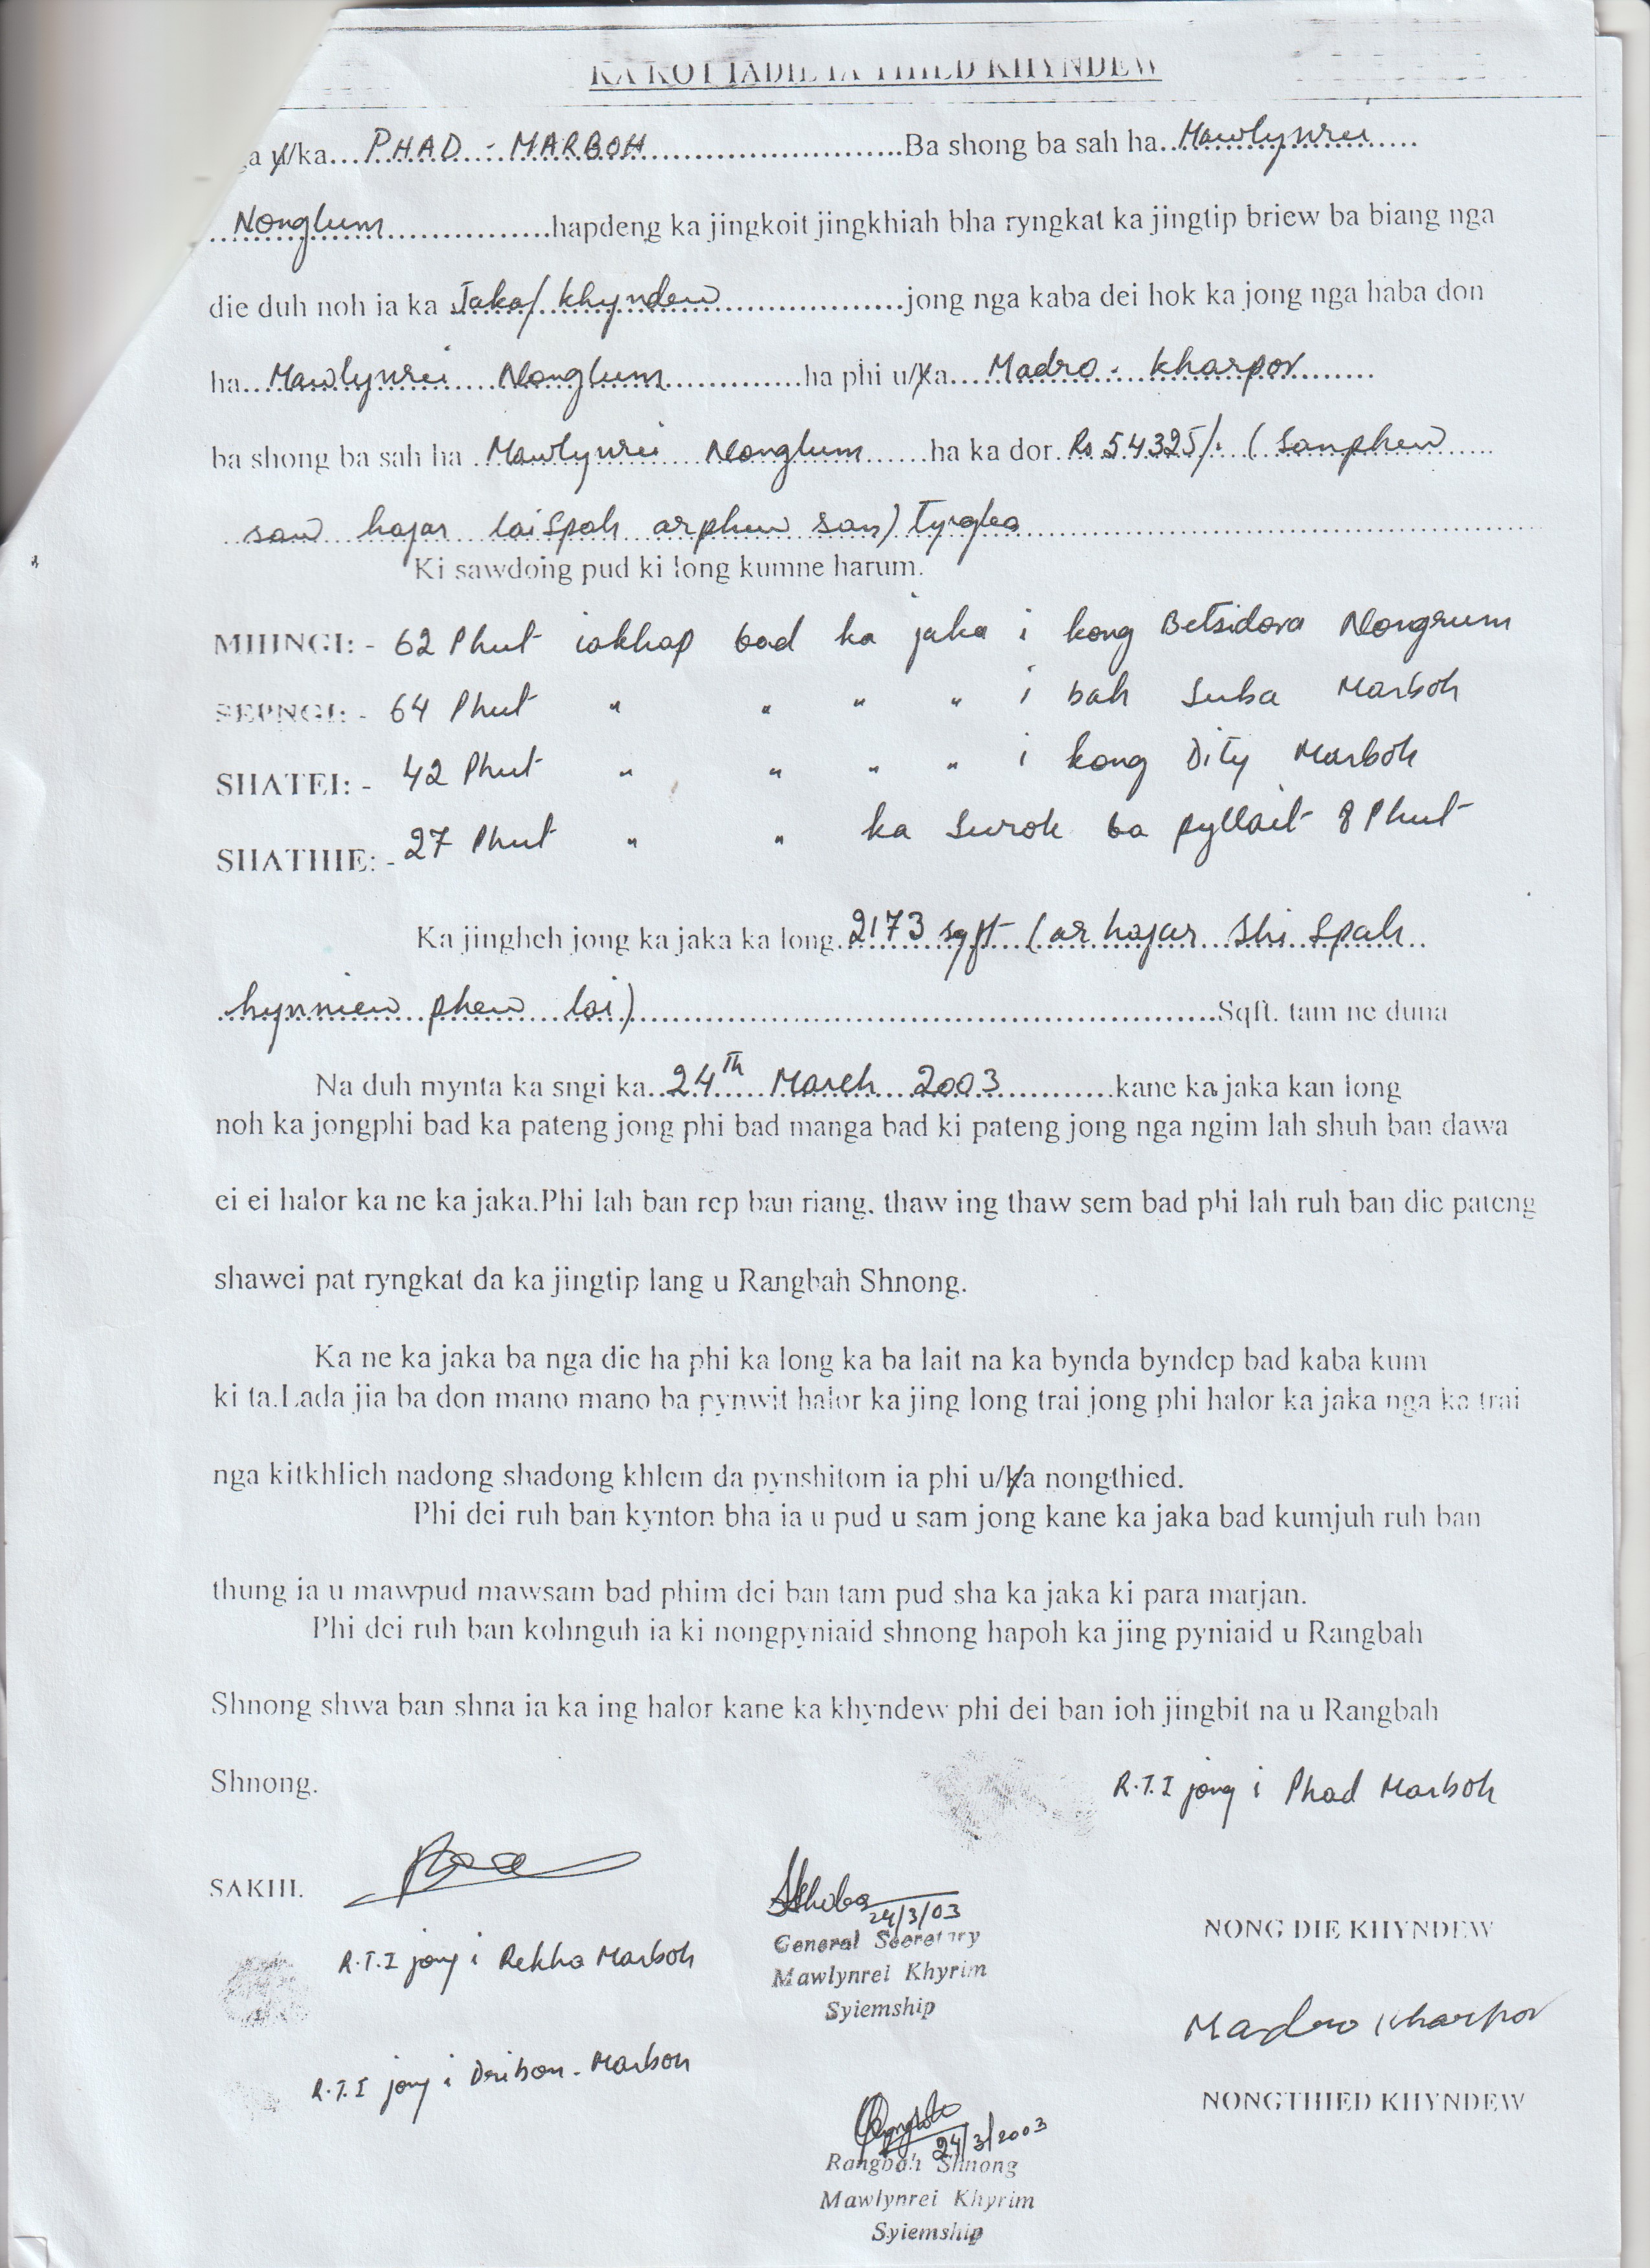 KA KOT IADIE IA THIED KHYNDEW
u/ka....PHAD - MARBOH..............................Ba shong ba sah ha..Mawlynrei......
...Nonglum....................hapdeng ka jingkoit jingkhiah bha ryngkat ka jingtip briew ba biang nga
die duh noh ia ka Jaka/ khyndew......................jong nga kaba dei hok ka jong nga haba don
ha...Mawlynrei Nonglum...............ha phi u/ka....Madro - Kharpor........
ba shong ba sah ha ..Mawlynrei Nonglum.......ha ka dor. Rs 54325/. (Sanphew.....
saw hajar laispah arphew san) Tyngka......................................................
Ki sawdong pud ki long kumne harum.
MIHNGI: - 62 Phut iakhap bad ka jaka i kong Betsidora Nongrum
SEPNGI: - 64 Phut " " " " i bah Suba Marboh
SHATEI: - 42 Phut " " " " i kong Dity Marboh
SHATHIE: - 27 Phut " " ka Surok ba pyllait 8 Phut
Ka jingheh jong ka jaka ka long. 2173 sqft (ar hajar Shi Spah..
hynniew phew lai)............................................................Sqft. tam ne duna
Na duh mynta ka sngi ka..24th March 2003............kane ka jaka kan long
noh ka jongphi bad ka pateng jong phi bad manga bad ki pateng jong nga ngim lah shuh ban dawa
ei ei halor ka ne ka jaka.Phi lah ban rep ban riang. thaw ing thaw sem bad phi lah ruh ban die pateng
shawei pat ryngkat da ka jingtip lang u Rangbah Shnong.
Ka ne ka jaka ba nga die ha phi ka long ka ba lait na ka bynda byndep bad kaba kum
ki ta.Lada jia ba don mano mano ba pynwit halor ka jing long trai jong phi halor ka jaka nga ka trai
nga kitkhlieh nadong shadong khlem da pynshitom ia phi u/ka nongthied.
Phi dei ruh ban kynton bha ia u pud u sam jong kane ka jaka bad kumjuh ruh ban
thung ia u mawpud mawsam bad phim dei ban tam pud sha ka jaka ki para marjan.
Phi dei ruh ban kohnguh ia ki nongpyniaid shnong hapoh ka jing pyniaid u Rangbah
Shnong shwa ban shna ia ka ing halor kane ka khyndew phi dei ban ioh jingbit na u Rangbah
Shnong.
R.T.I jong i Phad Marboh
SAKHI.
24/3/03
General Secretary
Mawlynrei Khyrim
Syiemship
NONG DIE KHYNDEW
R.T.I jong i Rekha Marboh
Madro Kharpor
R.T.I jong i Dribon - Marboh
NONGTHIED KHYNDEW
24/3/2003
Rangbah Shnong
Mawlynrei Khyrim
Syiemship